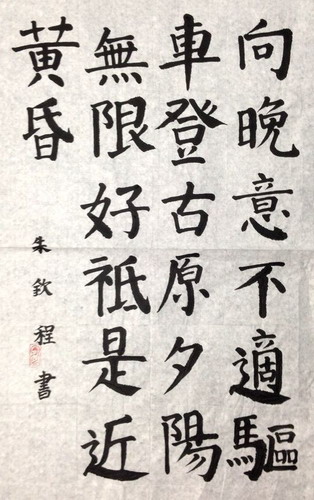 向晚意不適驅
車登古原夕陽
無限好祗是近
黃昏
朱欽程書